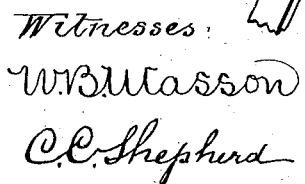 Witnesses:
W.B. Wasson
C.C. Shepherd